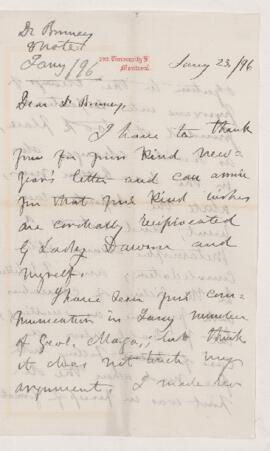 Dr Binney
& note
Jany /96
293 University St
Montreal
Jany 23 /96
Dear Dr Binney,
I have to thank
you for your kind new-
year's letter and can assure
you that your kind wishes
are cordially reciprocated
by Lady Dawson and
myself.
I have seen your com-
munication in Jany number
of Geol. Maga., but think
it does not touch my
argument. I made no